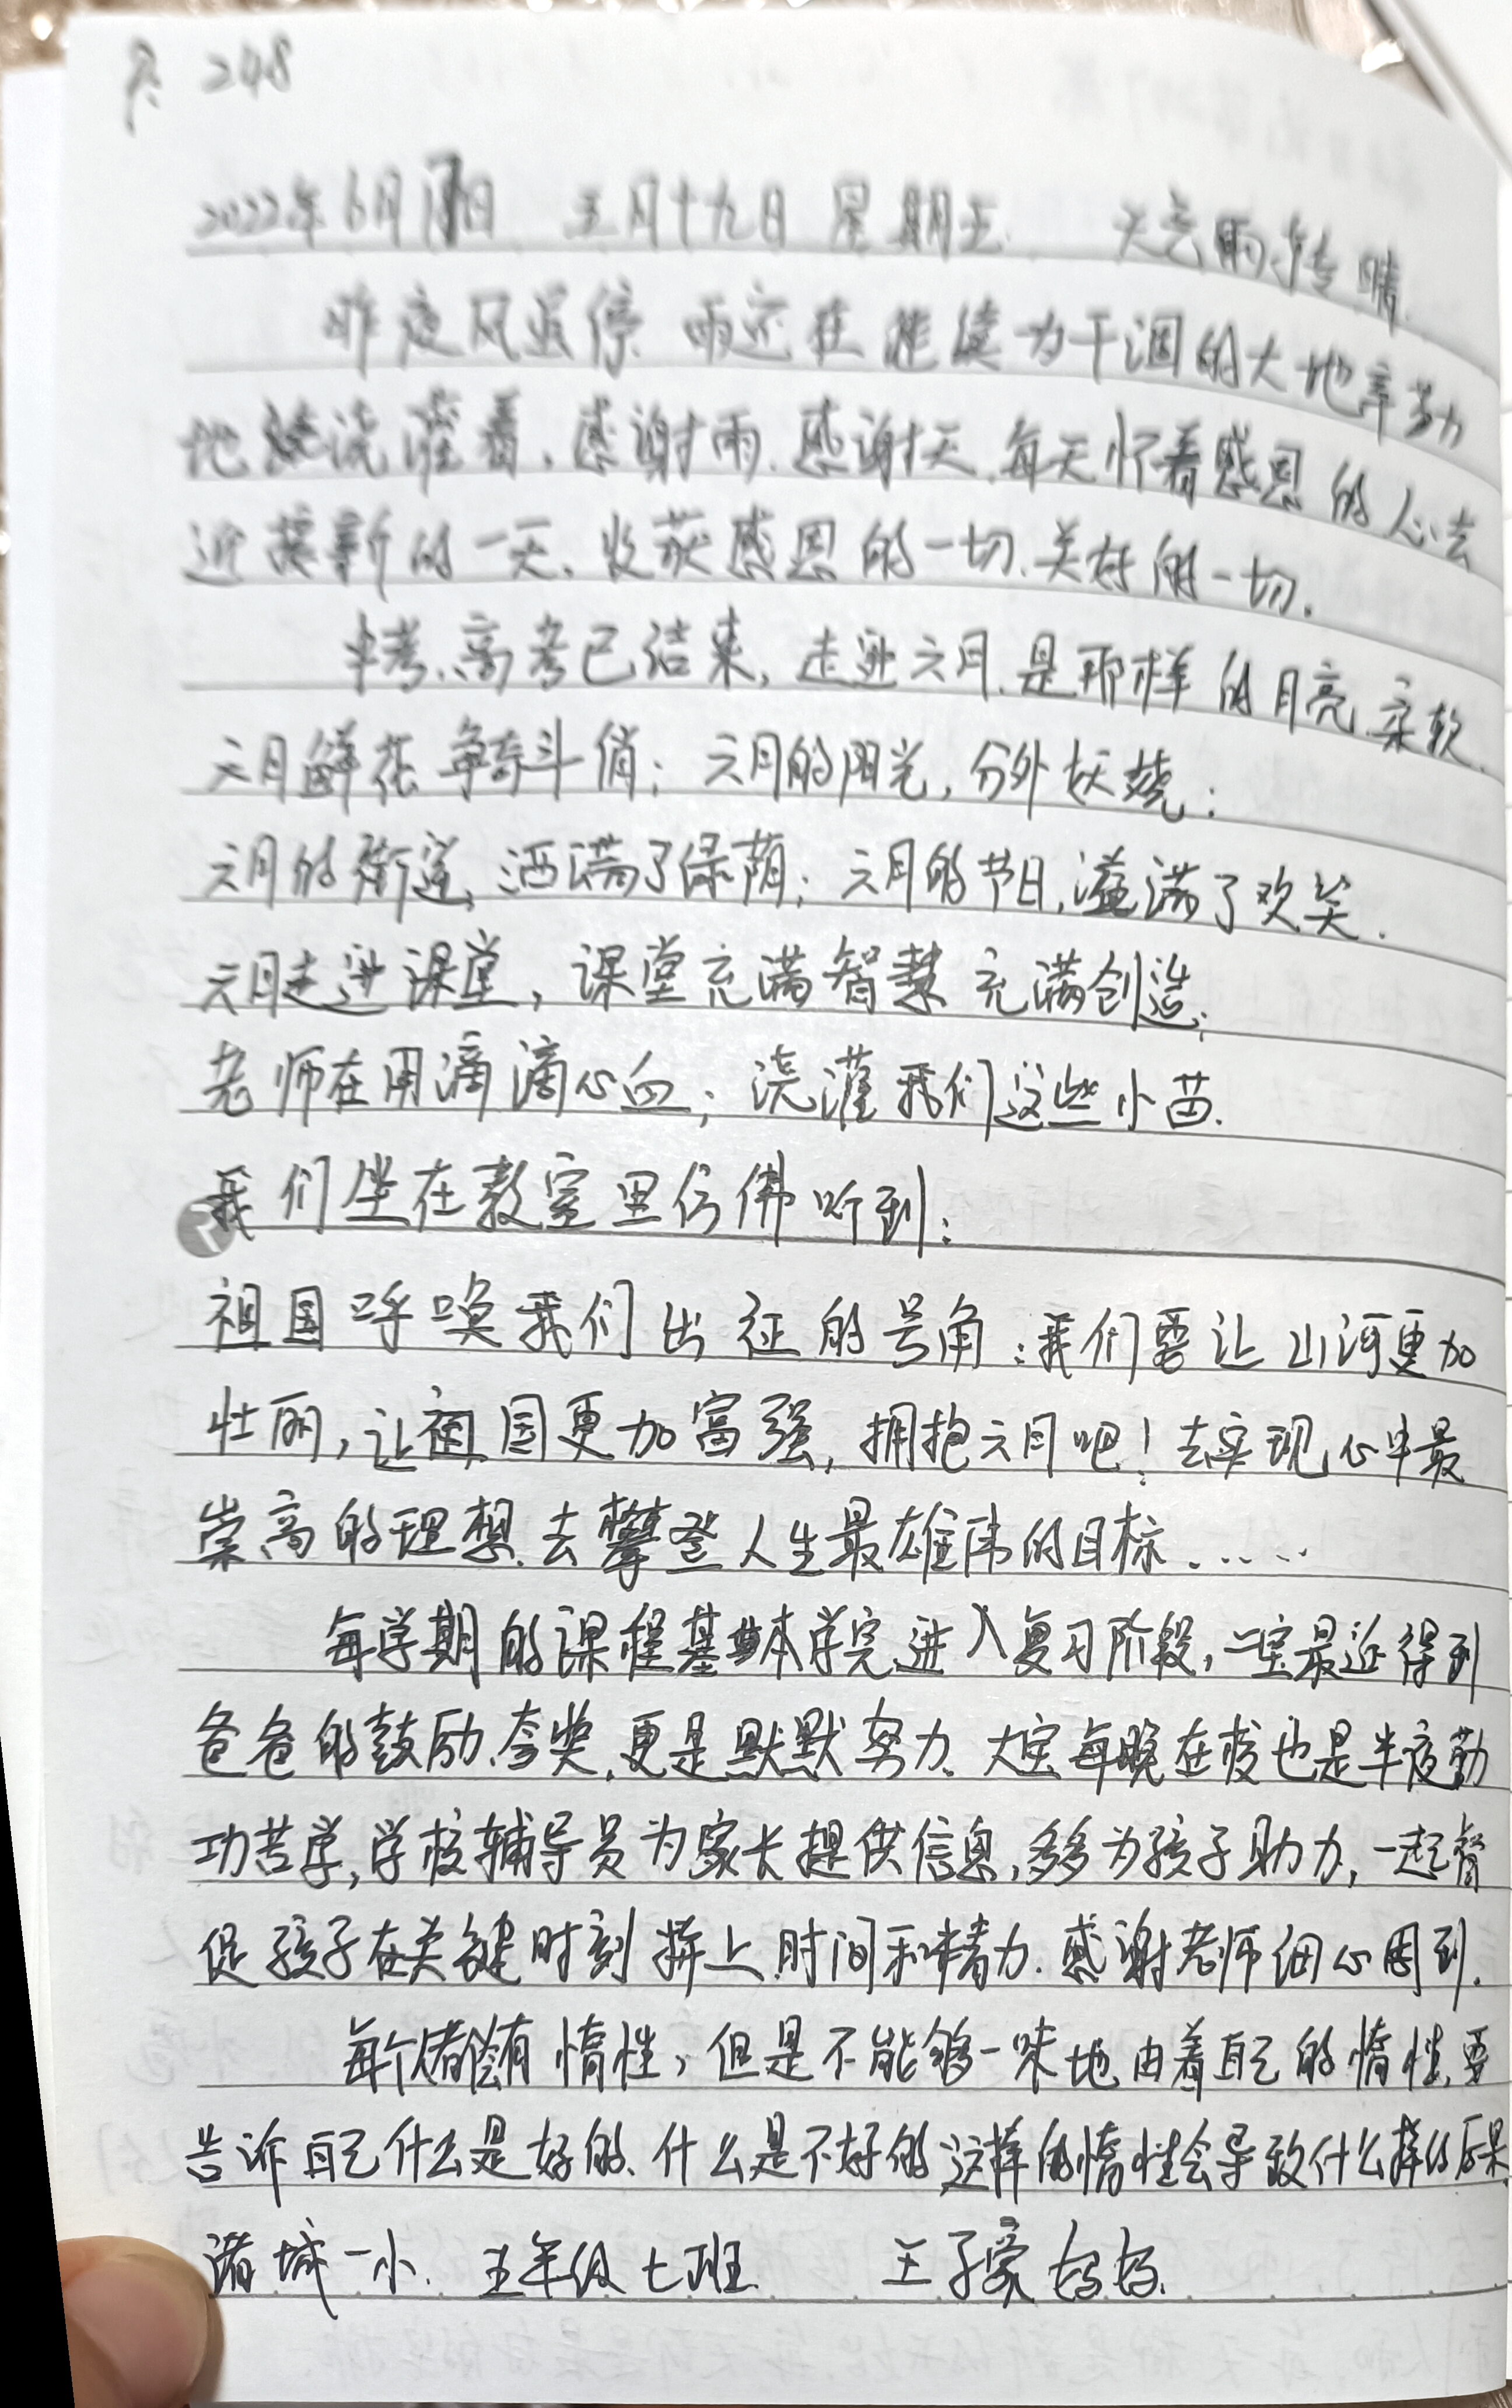 248
2022年6月17日 五月十九日 星期五 天气雨转晴
昨夜风虽停 雨还在继续为干涸的大地辛勤
地浇灌着,感谢雨.感谢天.每天怀着感恩的心去
迎接新的一天.收获感恩的一切.美好的一切.
中考.高考已结束,走进六月.是那样的月亮.柔软.
六月鲜花争奇斗俏;六月的阳光,分外妖娆;
六月的街道,洒满了绿荫;六月的节日,溢满了欢笑.
六月走进课堂,课堂充满智慧 充满创造;
老师在用滴滴心血;浇灌我们这些小苗.
我们坐在教室里仿佛听到:
祖国呼唤我们出征的号角:我们要让山河更加
壮丽,让祖国更加富强,拥抱六月吧!去实现心中最
崇高的理想.去攀登人生最雄伟的目标......
每学期的课程基本学完进入复习阶段,二宝最近得到
爸爸的鼓励.夸奖.更是默默努力.大宝每晚在校也是半夜勤
功苦学,学校辅导员为家长提供信息,多多为孩子助力,一起督
促孩子在关键时刻拼上时间和精力.感谢老师细心周到.
每个都会有惰性,但是不能够一味地由着自己的惰性.要
告诉自己什么是好的.什么是不好的 这样的惰性会导致什么样的后果.
诸城一小.五年级七班 王子豪妈妈.